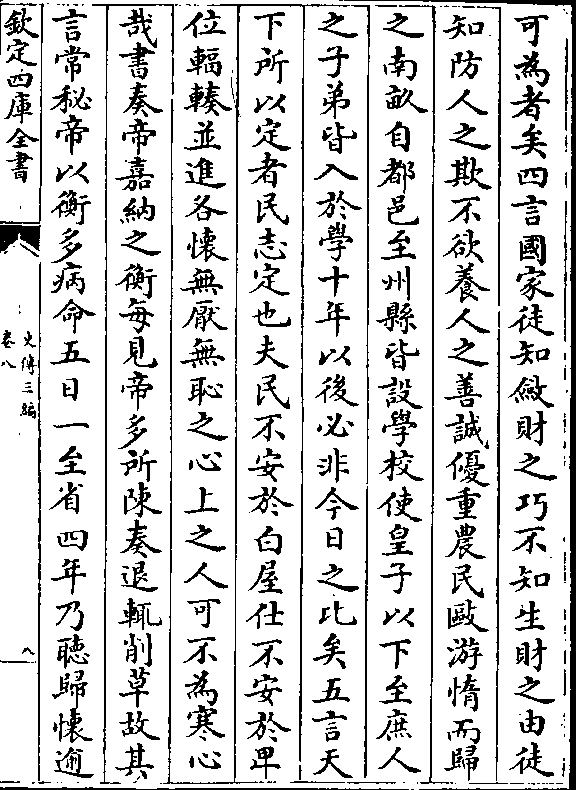 可為者矣四言國家徒知斂財之巧不知生財之由徒
知防人之欺不欲養人之善誠優重農民毆游惰而歸
之南畝自都邑至州縣皆設學校使皇子以下至庶人
之子弟皆入於學十年以後必非今日之比矣五言天
下所以定者民志定也夫民不安於白屋仕不安於卑
位輻輳並進各懷無厭無恥之心上之人可不為寒心
哉書奏帝嘉納之衡每見帝多所陳奏退輒削草故其
言常秘帝以衡多病命五日一至省四年乃聽歸懷逾
欽定四庫全書
史傳三編
卷八
八